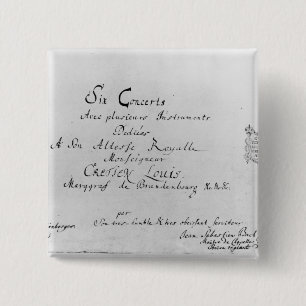 Six Concerts
Avec plusieurs Instruments
Dediées
A Son Altesse Royalle
Monseigneur
CRETIEN LOUIS.
Marggraf de Brandenbourg &c.&c.&c.
par
Son tres-humble & tres obeissant serviteur
Jean Sebastien Bach
Maitre de Chapelle